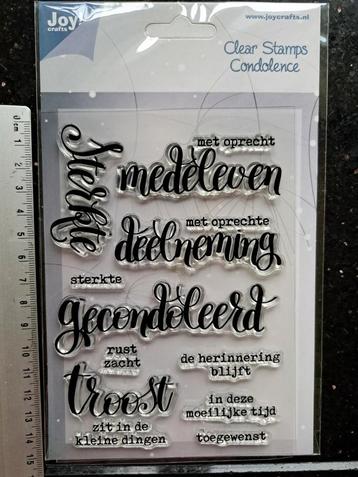 www.joycrafts.nl
Joy
crafts
Clear Stamps
Condolence
Sterkte
met oprecht
medeleven
met oprechte
deelneming
sterkte
gecondoleerd
rust
zacht
de herinnering
blijft
troost
in deze
moeilijke tijd
zit in de
kleine dingen
toegewenst
0 cm
1
2
3
4
5
6
7
8
9
10
11
12
13
14
15